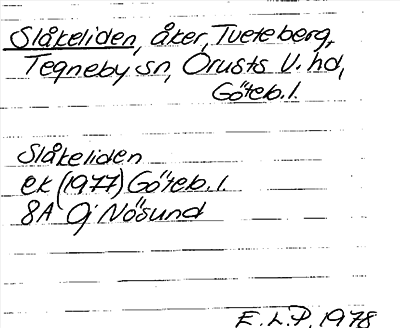 Slåkeliden, åker, Tveteberg,
Tegneby sn, Orusts V. hd,
Göteb. l.
Slåkeliden
ek (1977) Göteb. l.
8A 9j Nösund
E. L. P. 1978